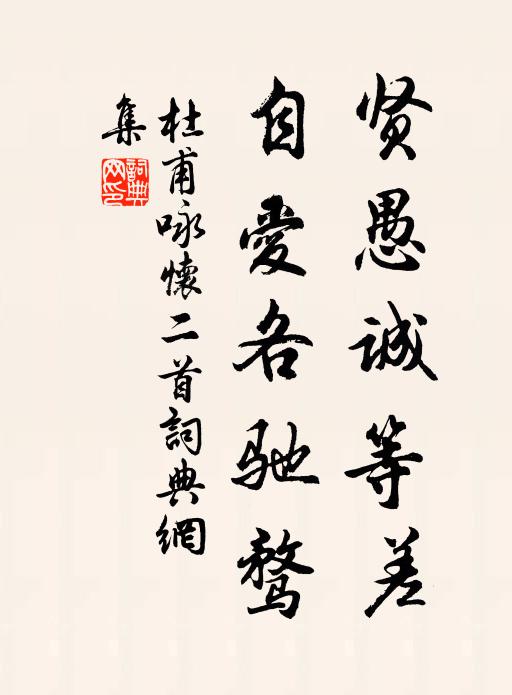 贤愚诚等差
自爱各驰骛
杜甫咏怀二首词典網
集
詞典
网印